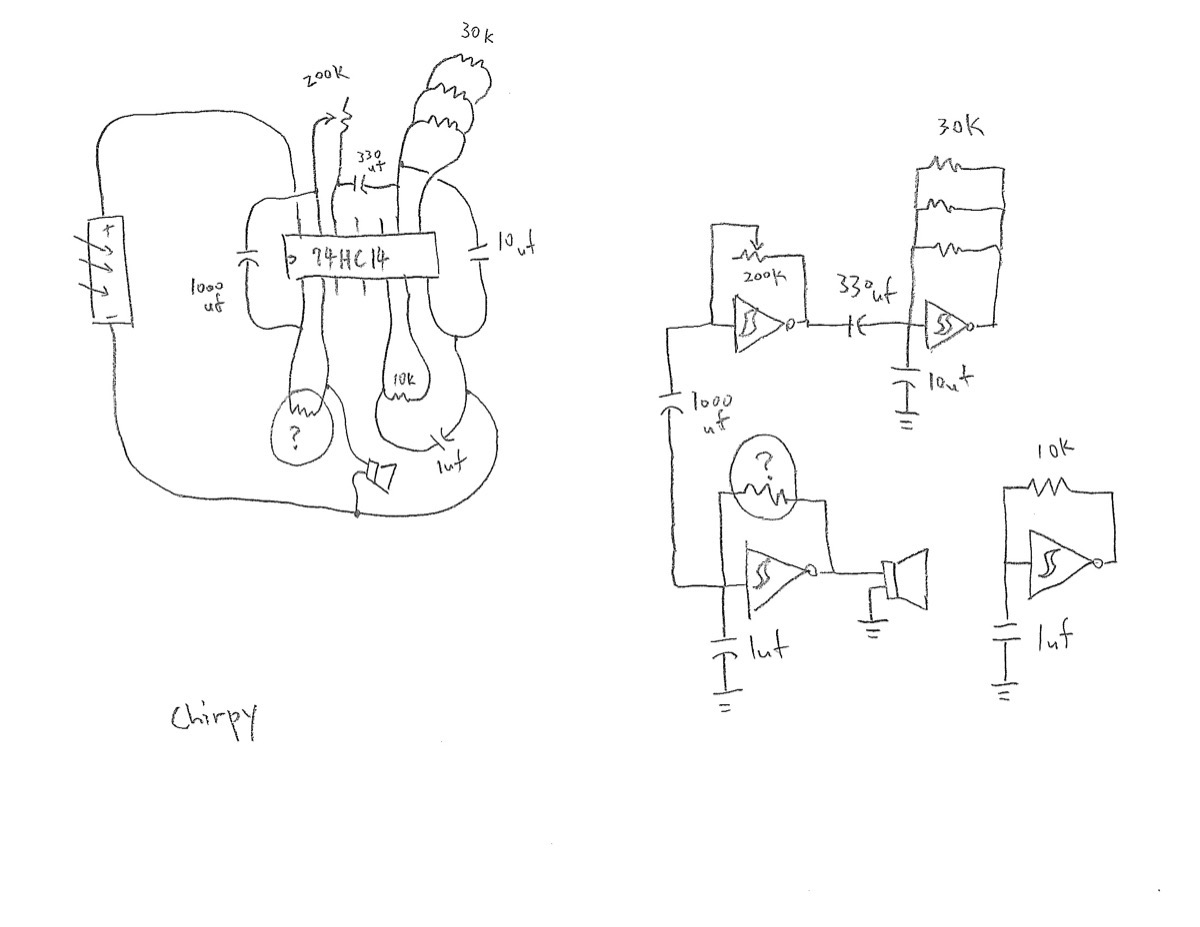 30K
200K
330
uf
+
74HC14
10uf
1000
uf
-
10K
?
1uf
Chirpy
30K
200K
330uf
10uf
1000
uf
?
10K
1uf
1uf